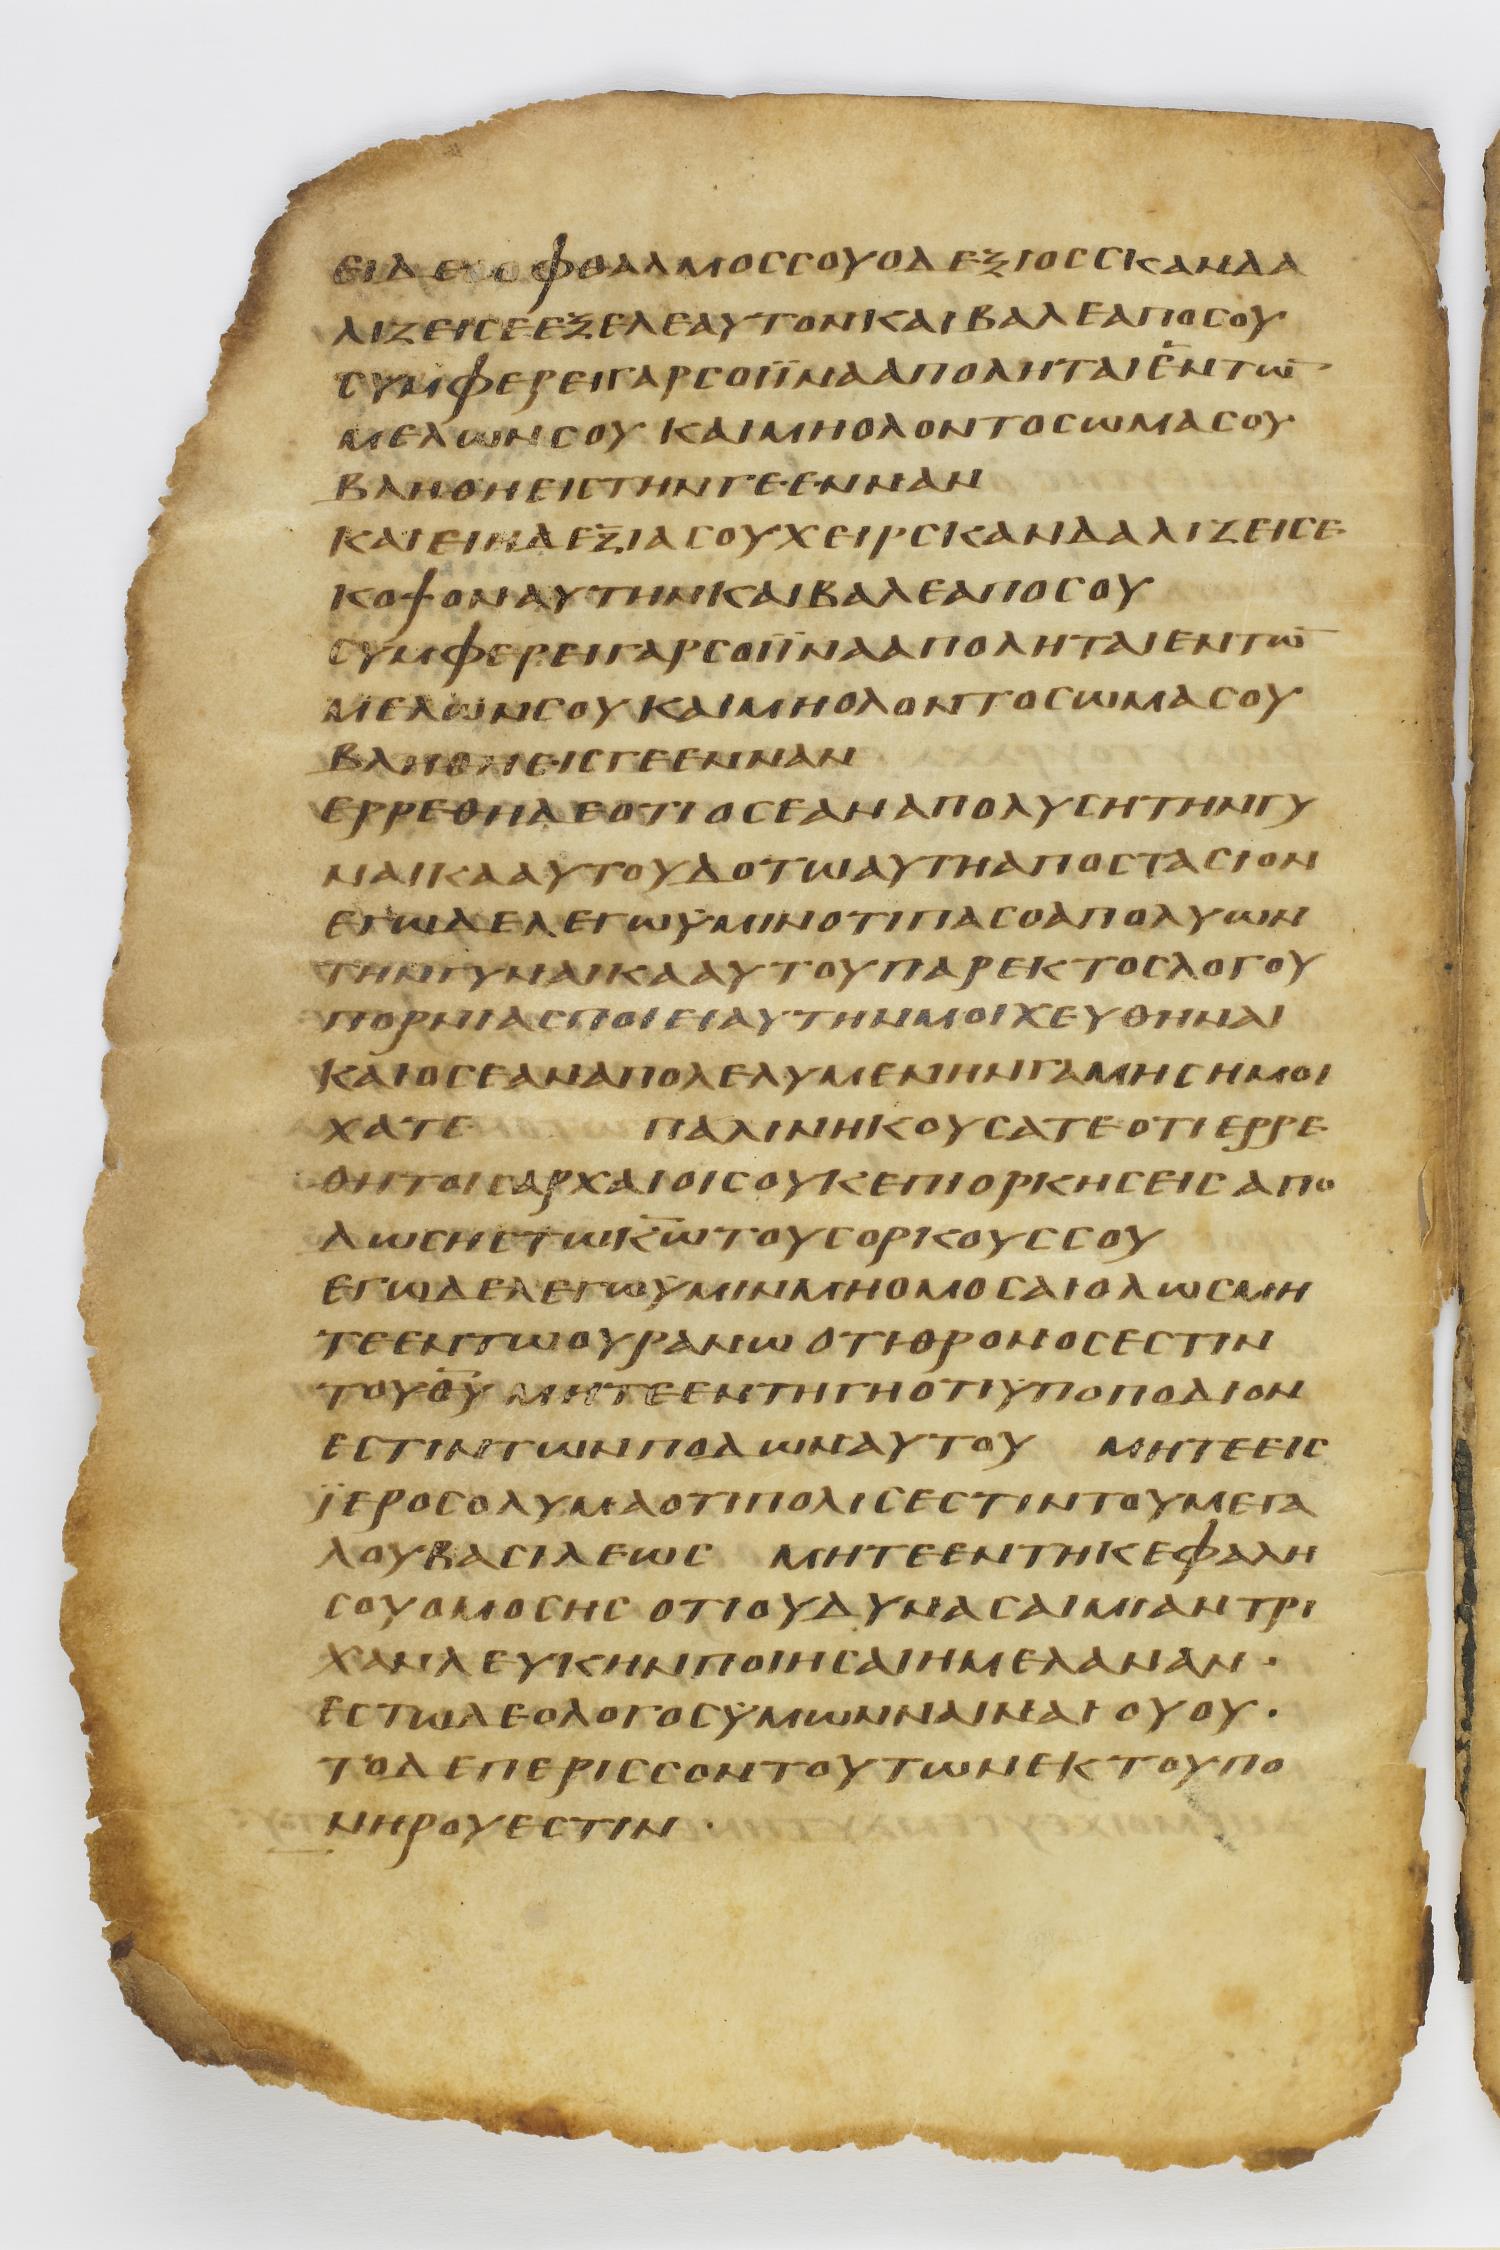 ειδεοοφθαλμοσσουοδεξιοσσκανδα
λιζεισεεξελεαυτονκαιβαλεαποσου
συμφερειγαρσοιϊνααποληταιεντω̅
μελωνσου καιμηολοντοσωμασου
βληθηειστηνγεενναν
καιειηδεξιασουχειρσκανδαλιζεισε
κοψοναυτηνκαιβαλεαποσου
συμφερειγαρσοιϊνααποληταιεντω̅
μελωνσουκαιμηολοντοσωμασου
βληθηεισγεενναν
ερρεθηδεοτιοσεαναπολυσητηνγυ
ναικααυτουδοτωαυτηαποστασιον
εγωδελεγωϋμινοτιπασοαπολυων
τηνγυναικααυτουπαρεκτοσλογου
πορνιασποιειαυτηνμοιχευθηναι
καιοσεαναπολελυμενηνγαμησημοι
χατε παλινηκουσατεοτιερρε
θητοισαρχαιοισουκεπιορκησεισαπο
δωσηστωκ̅ω̅τουσορκουσσου
εγωδελεγωϋμινμηομοσαιολωσμη
τεεντωουρανωοτιθρονοσεστιν
τουθ̅υ̅ μητεεντηγηοτιϋποποδιον
εστιντωνποδωναυτου μητεεισ
ϊεροσολυμαοτιπολισεστιντουμεγα
λουβασιλεωσ μητεεντηκεφαλη
σουομοσησ οτιουδυνασαιμιαντρι
χανλευκηνποιησαιημελαναν·
εστωδεολογοσϋμωνναιναιουου·
τοδεπερισσοντουτωνεκτουπο
νηρουεστιν·